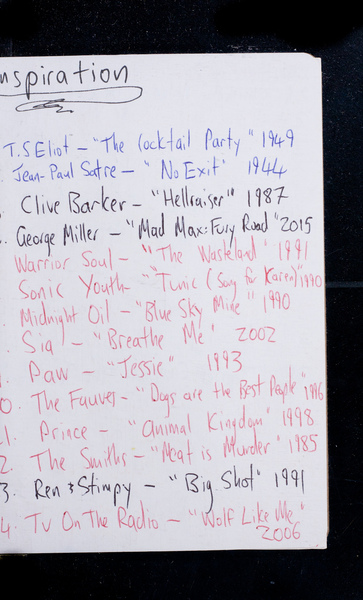 nspiration
T.S Eliot - "The Cocktail Party" 1949
Jean-Paul Satre - "No Exit" 1944
Clive Barker - "Hellraiser" 1987
. George Miller - "Mad Max: Fury Road" 2015
Warrior Soul - "The Wasteland" 1991
Sonic Youth - "Tunic (Song for Karen)" 1990
Midnight Oil - "Blue Sky Mine" 1990
. Sia - "Breathe Me" 2002
. Paw - "Jessie" 1993
0. The Fauves - "Dogs are the Best People" 1996
1. Prince - "Animal Kingdom" 1998
2. The Smiths - "Meat is Murder" 1985
3. Ren & Stimpy - "Big Shot" 1991
4. TV On The Radio - "Wolf Like Me"
2006